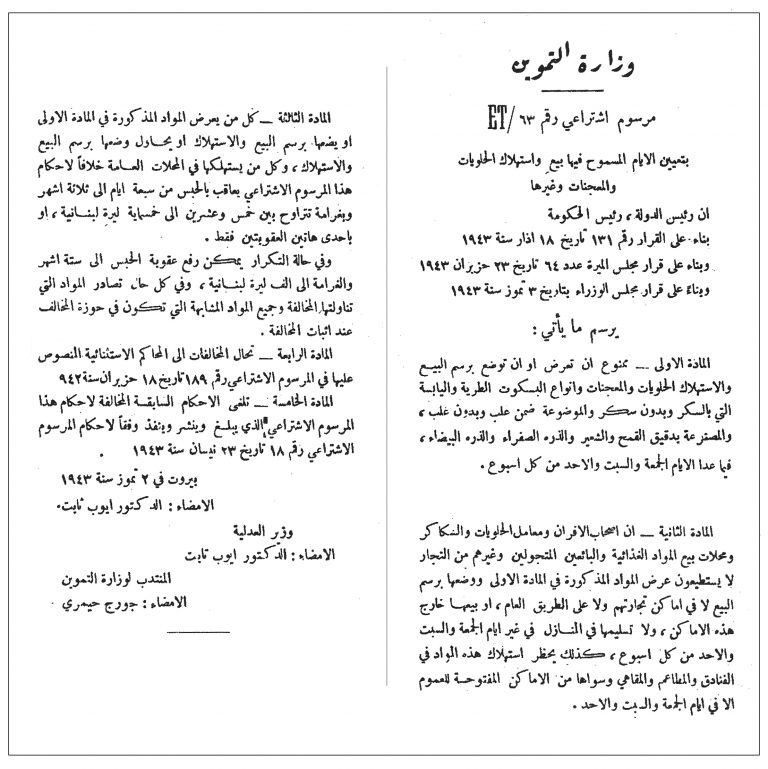 وزارة التموين
مرسوم اشتراعي رقم ٦٣/ET
بتعيين الايام المسموح فيها بيع واستهلاك الحلويات
والمعجنات وغيرها
ان رئيس الدولة، رئيس الحكومة
بناء على القرار رقم ١٣١ تاريخ ١٨ اذار سنة ١٩٤٣
وبناء على قرار مجلس الميرة عدد ٦٤ تاريخ ٢٣ حزيران ١٩٤٣
وبناءً على قرار مجلس الوزراء بتاريخ ٣ تموز سنة ١٩٤٣
يرسم ما يأتي:
المادة الاولى ــ ممنوع ان تعرض او ان توضع برسم البيع
والاستهلاك الحلويات والمعجنات وانواع البسكوت الطرية واليابسة
التي بالسكر وبدون سكر والموضوعة ضمن علب وبدون علب،
والمصترعة بدقيق القمح والشعير والذره الصفراء والذره البيضاء،
فيما عدا الايام الجمعة والسبت والاحد من كل اسبوع.
المادة الثانية ــ ان اصحاب الافران ومعامل الحلويات والسكاكر
ومحلات بيع المواد الغذائية والبائعين المتجولين وغيرهم من التجار
لا يستطيعون عرض المواد المذكورة في المادة الاولى ووضعها برسم
البيع لا في اماكن تجارتهم ولا على الطريق العام، او بيعها خارج
هذه الاماكن، ولا تسليمها في المنازل في غير ايام الجمعة والسبت
والاحد من كل اسبوع، كذلك يحظر استهلاك هذه المواد في
الفنادق والمطاعم والمقاهي وسواها من الاماكن المفتوحة للعموم
الا في ايام الجمعة والسبت والاحد.
المادة الثالثة ــ كل من يعرض المواد المذكورة في المادة الاولى
او يضعها برسم البيع والاستهلاك او يحاول وضعها برسم البيع
والاستهلاك، وكل من يستهلكها في المحلات العامة خلافاً لاحكام
هذا المرسوم الاشتراعي يعاقب بالحبس من سبعة ايام الى ثلاثة اشهر
وبغرامة تتراوح بين خمس وعشرين الى خمسماية ليرة لبنانية، او
باحدى هاتين العقوبتين فقط.
وفي حالة التكرار يمكن رفع عقوبة الحبس الى ستة اشهر
والغرامة الى الف ليرة لبنانية، وفي كل حال تصادر المواد التي
تناولتها المخالفة وجميع المواد المشابهة التي تكون في حوزة المخالف
عند اثبات المخالفة.
المادة الرابعة ــ تحال المخالفات الى المحاكم الاستثنائية المنصوص
عليها في المرسوم الاشتراعي رقم ١٨٩ تاريخ ١٨ حزيران سنة ٩٤٢
المادة الخامسة ــ تلغى الاحكام السابقة المخالفة لاحكام هذا
المرسوم الاشتراعي الذي يبلغ وينشر وينفذ وفقاً لاحكام المرسوم
الاشتراعي رقم ١٨ تاريخ ٢٣ نيسان سنة ١٩٤٣.
بيروت في ٢ تموز سنة ١٩٤٣
الامضاء: الدكتور ايوب ثابت.
وزير العدلية
الامضاء: الدكتور ايوب ثابت
المنتدب لوزارة التموين
الامضاء: جورج حيمري